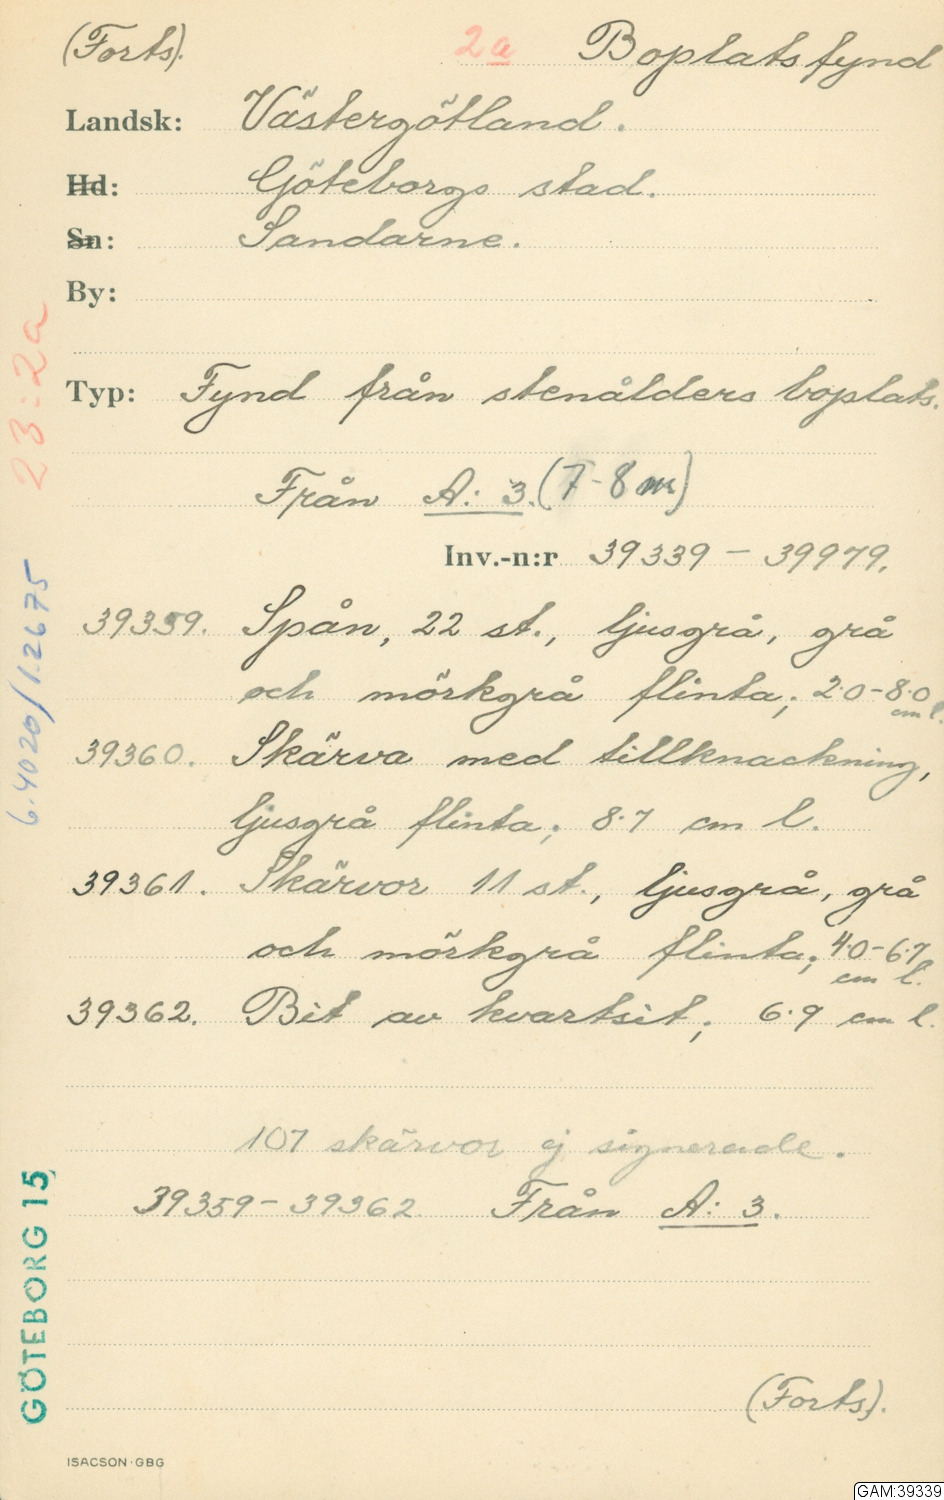 (Forts). 2a Boplatsfynd
Landsk: Västergötland.
Hd: Göteborgs stad.
Sn: Sandarne.
By:
Typ: Fynd från stenålders boplats.
Från A: 3. (7-8 m)
Inv.-n:r 39339 - 39979.
39359. Spån, 22 st., ljusgrå, grå
och mörkgrå flinta; 2.0-8.0
cm l.
39360. Skärva med tillknackning,
ljusgrå flinta; 8.7 cm l.
39361. Skärvor 11 st., ljusgrå, grå
och mörkgrå flinta; 4.0-6.7
cm l.
39362. Bit av kvartsit; 6.9 cm l.
107 skärvor ej signerade.
39359-39362 Från A: 3.
(Forts).
ISACSON·GBG
23:2a
6.4020/1.2675
GÖTEBORG 15
GAM:39339